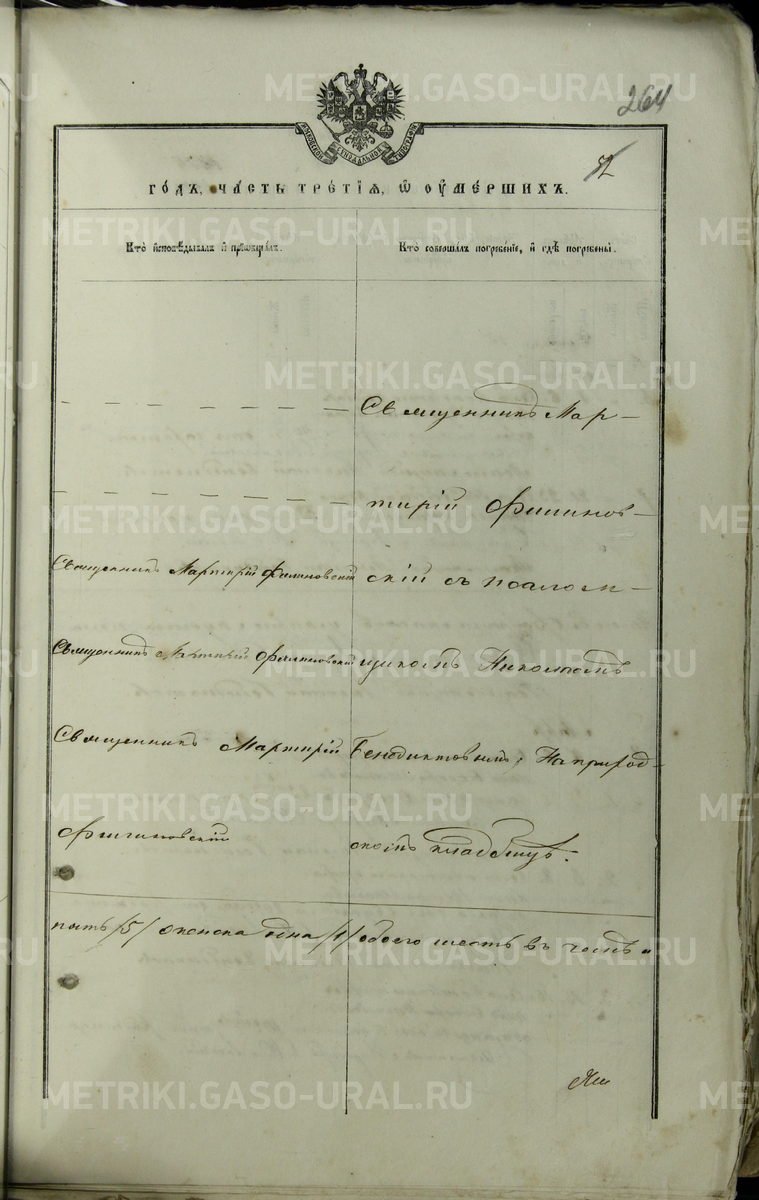 264
52
годъ, часть третія, ѡ оумершихъ.
Кто исповѣдывалъ и пріобщалъ.
Кто совершалъ погребеніе, и гдѣ погребены.
Священникъ Мар-
тирій Филинов-
Священникъ Мартирій Филиновскій
скій съ псалом-
Священникъ Мартирій Филиновскій
щикомъ Николаемъ
Священникъ Мартирій
Бенедиктовымъ; На приход-
Филиновскій
скомъ кладбищѣ.
пять /5/ женска одна /1/ обоего шесть въ томъ и
METRIKI.GASO-URAL.RU